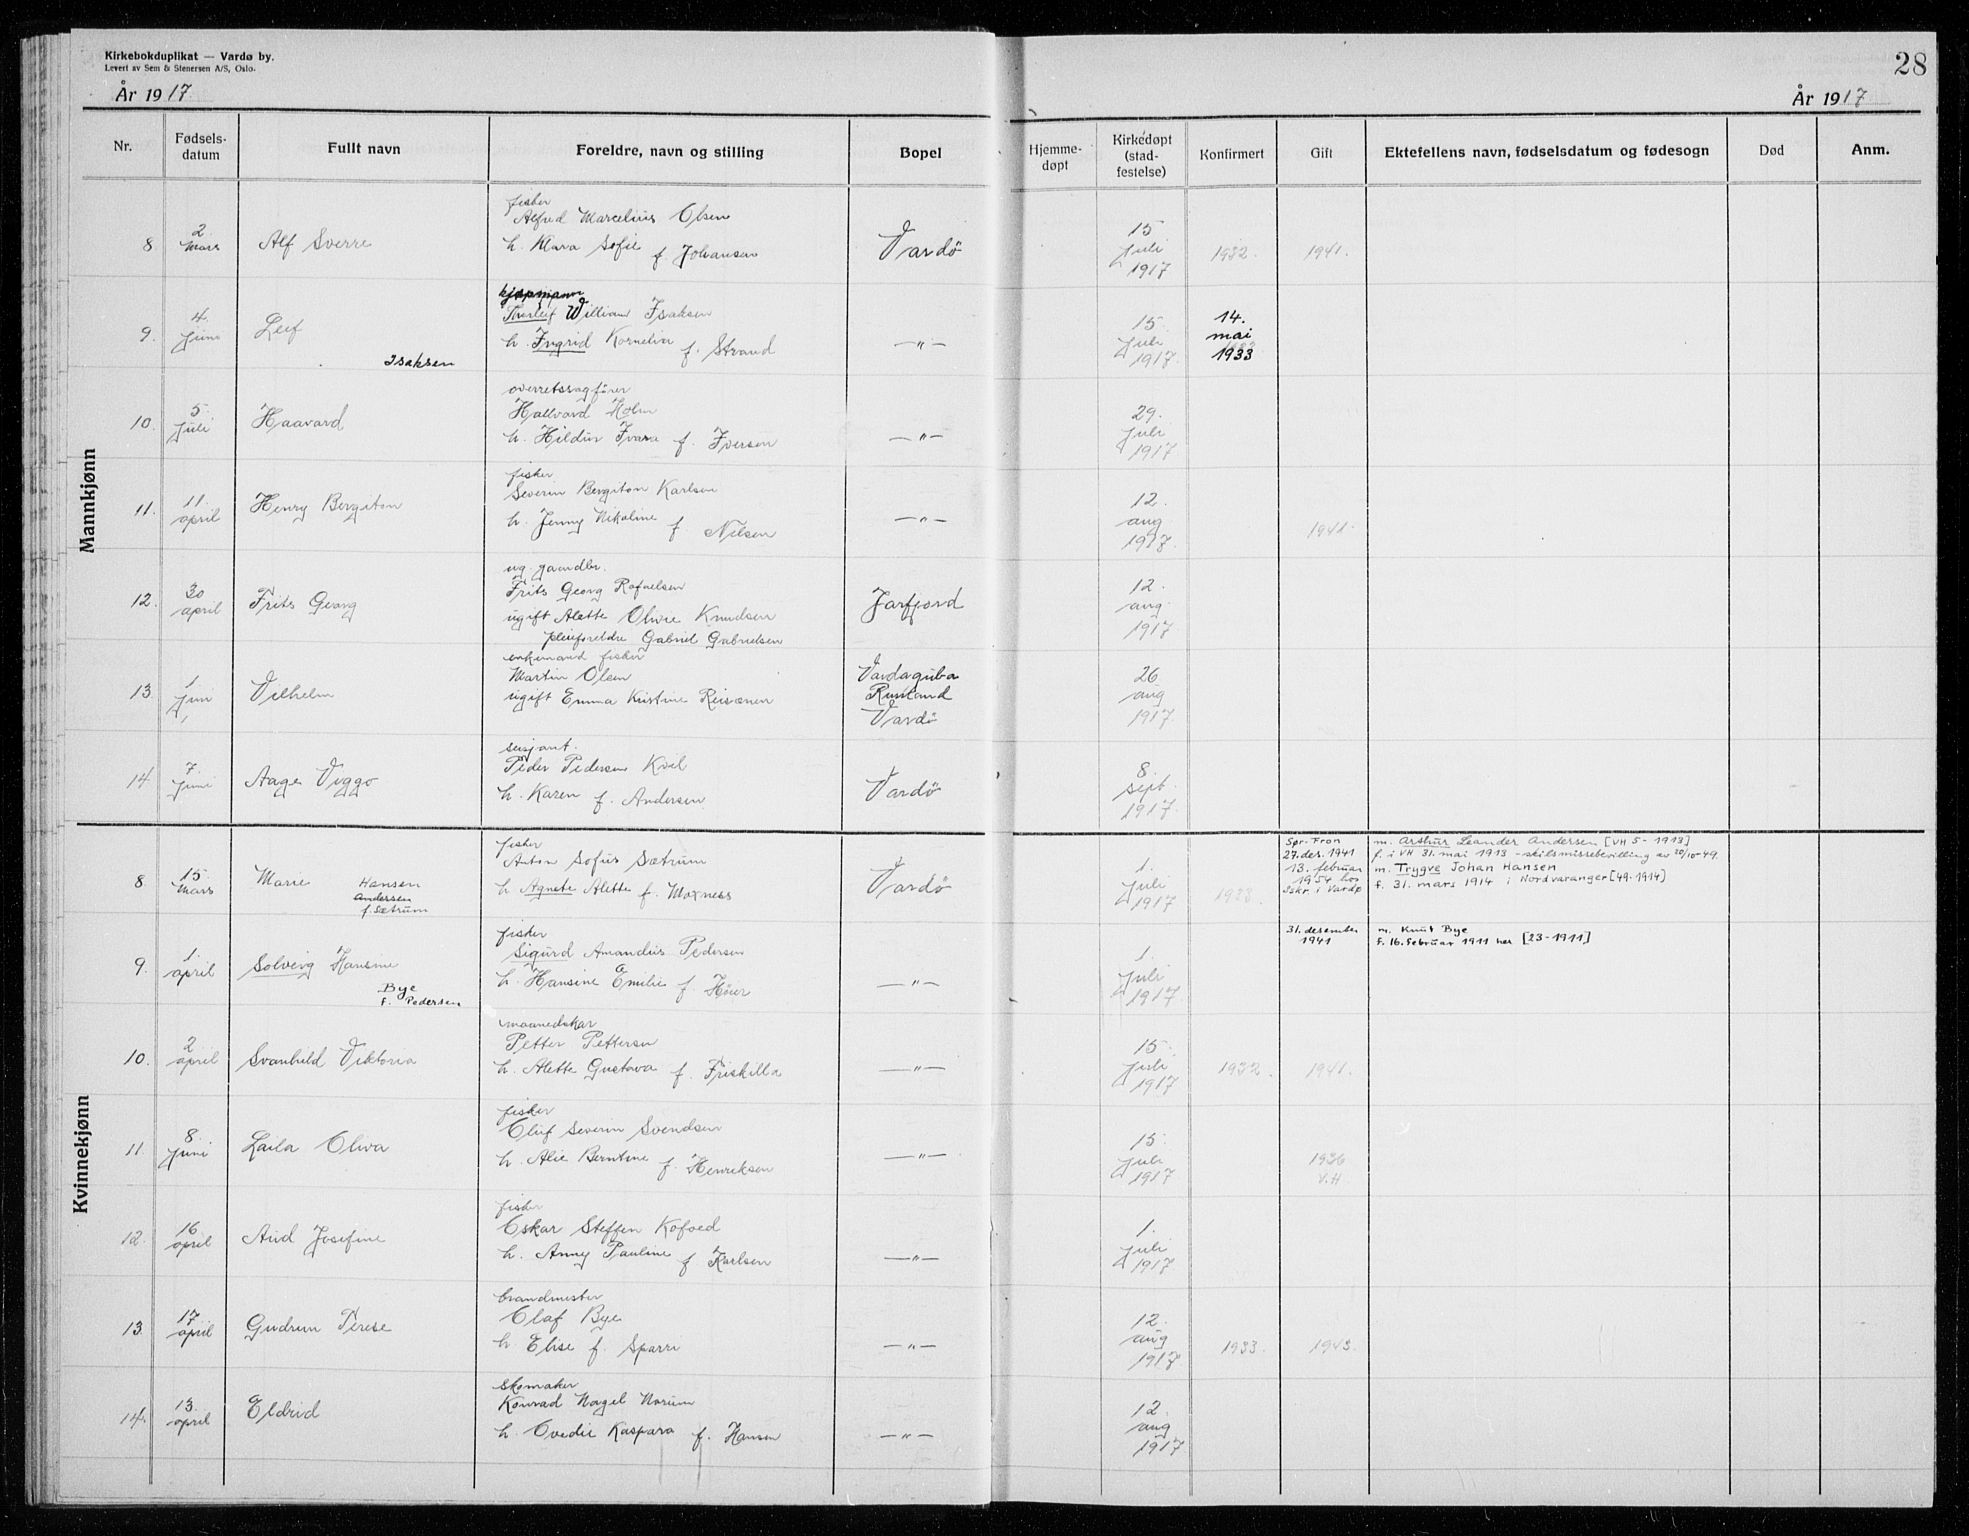 Kirkebokduplikat — Vardø by.
Levert av Sem & Stenersen A/S, Oslo.
År 1917
28
År 1917
Nr.
Fødsels-
datum
Fullt navn
Foreldre, navn og stilling
Bopel
Hjemme-
døpt
Kirkedøpt
(stad-
festelse)
Konfirmert
Gift
Ektefellens navn, fødselsdatum og fødesogn
Død
Anm.
Mannkjønn
8
2
Mars
Alf Sverre
fisker
Alfred Marcelius Olsen
h. Klara Sofie f. Johansen
Vardö
15
Juli
1917
1932.
1941.
9.
4.
Juni
Leif
Isaksen
kjøpmann
Thorleif William Isaksen
h. Ingrid Kornelia f. Strand
—"—
15.
Juli
1917.
14.
mai
1933
10.
5.
Juli
Haavard
overretssagfører
Hallvard Holm
h. Hildur Ivara f. Iversen
—"—
29.
Juli
1917.
11.
11.
april
Henry Bergiton
fisker
Severin Bergiton Karlsen
h. Jenny Nikoline f. Nilsen
—"—
12.
aug
1917.
1941.
12.
30
april
Frits Georg
ug. gaardbr.
Frits Georg Rafaelsen
ugift Alette Olivie Knudsen
pleieforeldre Gabriel Gabrielsen
Jarfjord
12.
aug.
1917
13.
1
Juni
Vilhelm
enkemand fisker
Martin Olsen
ugift Emma Kristine Reisænen
Vardaguba
Rusland
Vardö
26
aug
1917.
14
7.
Juni
Aage Viggo
sersjant.
Peder Pedersen Kvil
h. Karen f. Andersen
Vardö
8.
sept.
1917.
Kvinnekjønn
8.
15.
Mars
Marie Hansen
Andersen
f. Sætrum
fisker
Anton Sofus Sætrum
h. Agnete Alette f. Moxness
Vardö
1.
Juli
1917
1933.
Sør-Fron
27. des. 1941
13. februar
1954 hos
Sskr. i Vardø
m. Arthur Leander Andersen [VH 5-1913]
f. i VH 31. mai 1913 - skilsmissebevilling av 20/10-49.
m. Trygve Johan Hansen
f. 31. mars 1914 i Nordvaranger [49-1914]
9.
1
april
Solveig Hansine
Bye
f. Pedersen
fisker
Sigurd Amandus Pedersen
h. Hansine Emilie f. Höier
—"—
1.
Juli
1917.
31. desember
1941
m. Knut Bye
f. 16. februar 1911 her [23-1911]
10.
2
april
Svanhild Viktoria
maanedskar
Petter Pettersen
h. Alette Gustava f. Friskilla
—"—
15.
Juli
1917
1932.
1941.
11.
8.
Juni
Laila Oliva
fisker
Oluf Severin Svendsen
h. Alie Berntine f. Henriksen
—"—
15.
Juli
1917
1936
V.H
12.
16
april
Aud Josefine
fisker
Oskar Steffen Kofoed
h. Anny Pauline f. Karlsen
—"—
1.
Juli
1917
13.
17
april
Gudrun Terese
brandmester
Olaf Bye
h. Elise f. Sparre
—"—
12.
aug
1917
1933.
1943.
14.
13.
april
Eldrid
skomaker
Konrad Nagel Norum
h. Ovedie Kaspara f. Hansen
—"—
12.
aug
1917